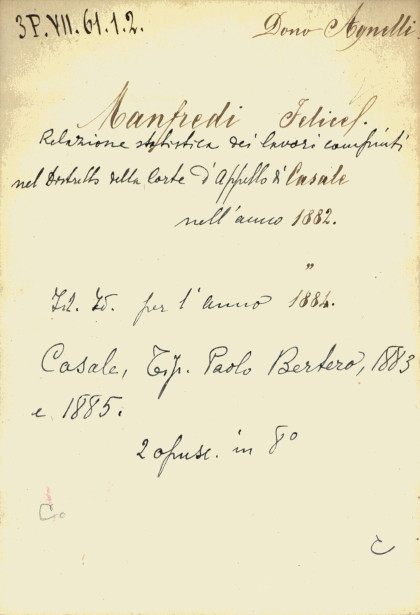 3P.VII.61.1.2.
Dono Agnelli
Manfredi Felice.
Relazione statistica dei lavori compiuti
nel Distretto della Corte d'Appello di Casale
nell'anno 1882.
"
Id. Id. per l'anno 1884.
Casale, Tip. Paolo Bertero, 1883
e 1885.
2 opusc. in 8º
C.
C